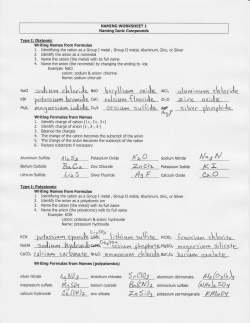 NAMING WORKSHEET 1
Naming Ionic Compounds
Type I: Diatomic
Writing Names from Formulas
1. Identifying the cation as a Group I metal, Group II metal, Aluminum, Zinc, or Silver
2. Identify the anion as a nonmetal
3. Name the cation (the metal) with its full name
4. Name the anion (the nonmetal) by changing the ending to -ide
Example: NaCl
cation: sodium & anion: chlorine
Name: sodium chloride
NaCl sodium chloride BeO beryllium oxide AlCl₃ aluminum chloride
KBr potassium bromide CaF₂ calcium fluoride ZnO zinc oxide
MgI₂ magnesium iodide Cs₂S cesium sulfide Ag₃P silver phosphide
Writing Formulas from Names
1. Identify charge of cation (1+, 2+, 3+)
2. Identify charge of anion (1-, 2-, 3-)
3. Balance the charges
4. The charge of the cation becomes the subscript of the anion
5. The charge of the anion becomes the subscript of the cation
6. Reduce subscripts if necessary
Aluminum Sulfide Al₂S₃ Potassium Oxide K₂O Sodium Nitride Na₃N
Barium Carbide Ba₂C Zinc Chloride ZnCl₂ Potassium Iodide KI
Lithium Sulfide Li₂S Silver Fluoride AgF Calcium Oxide CaO
Type I: Polyatomic
Writing Names from Formulas
1. Identifying the cation as a Group I metal, Group II metal, Aluminum, Zinc, or Silver
2. Identify the anion as a polyatomic ion
3. Name the cation (the metal) with its full name
4. Name the anion (the polyatomic) with its full name
Example: KOH
cation: potassium & anion: hydroxide
Name: potassium hydroxide
KCN potassium cyanide Li₂SO₄ lithium sulfate
NaOH sodium hydroxide
CaCO₃ calcium carbonate
Writing Formulas from Names (polyatomics)
silver nitrate AgNO₃ strontium chlorate aluminum dichromate
magnesium sulfate MgSO₄ barium cyanide Ba(CN)₂ ammonium sulfate
calcium hydroxide Ca(OH)₂ zinc silicate potassium permanganate KMnO₄